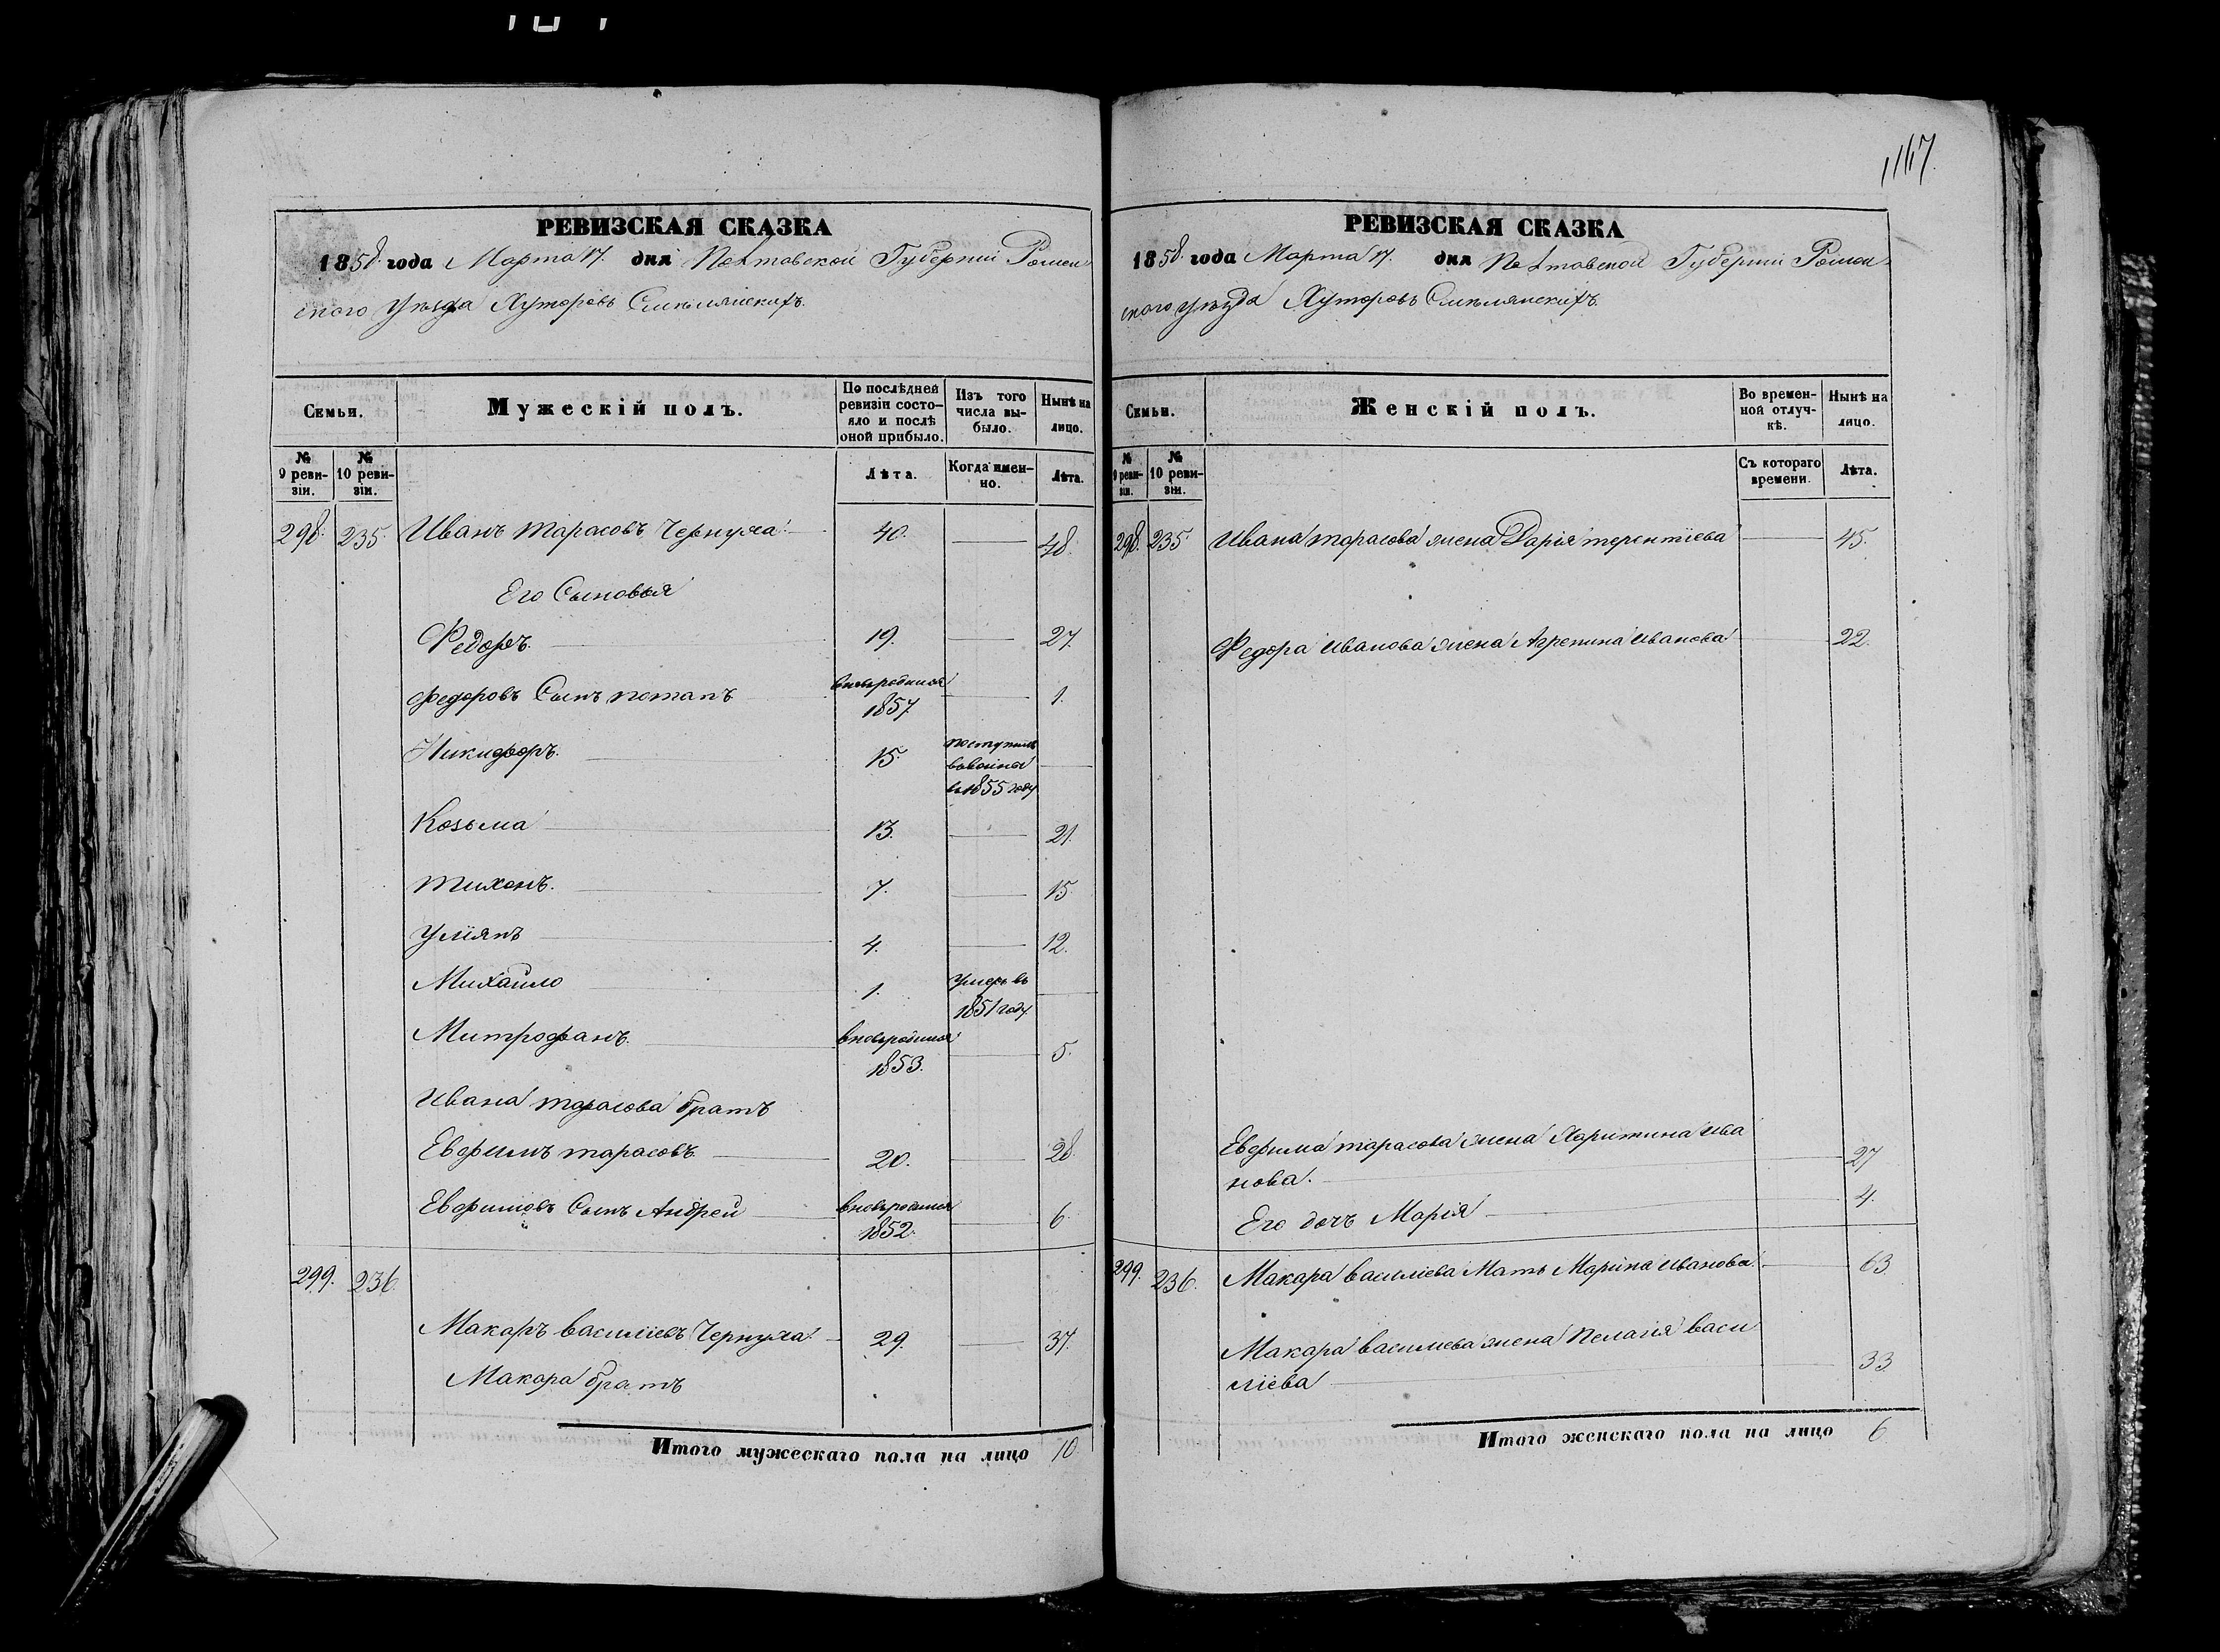 1147.
РЕВИЗСКАЯ СКАЗКА
1858. года Марта 17. дня Полтавской Губерніи Ромен
ского Уѣзда Хуторовъ Смѣлянскихъ.
Семьи.
Мужескій полъ.
По послѣдней ревизіи состояло и послѣ оной прибыло.
Изъ того числа выбыло.
Нынѣ на лицо.
№ 9 ревизіи.
№ 10 ревизіи.
Лѣта.
Когда именно.
Лѣта.
298. 235. Иванъ тарасовъ Чернуха. 40. 48.
Его Сыновья
Федоръ. 19. 27.
Федоровъ Сынъ потапъ вновьродился 1857 1.
Никифоръ. 15. поступилъ въ 1855 году
Козьма 13. 21.
тихонъ. 7. 15
Уліянъ 4. 12.
Михайло 1. Умеръ въ 1851 году
Митрофанъ. вновьродился 1853. 5.
Ивана тарасова братъ
Евфимъ тарасовъ. 20. 28.
Евфимовъ Сынъ Андрей вновьродился 1852. 6
299. 236.
Макаръ василіевъ Чернуха. 29. 37.
Макара братъ
Итого мужескаго пола на лицо 10.
РЕВИЗСКАЯ СКАЗКА
1858. года Марта 17. дня Полтавской Губерніи Ромен
ского уѣзда Хуторовъ Смѣлянскихъ.
Семьи.
Женскій полъ.
Во временной отлучкѣ.
Нынѣ на лицо.
№ 9 ревизіи.
№ 10 ревизіи.
Съ котораго времени.
Лѣта.
298. 235. Ивана тарасова жена Дарія терентіева 45.
Федора иванова жена Агрепина иванова 22.
Евфима тарасова жена Харитина ива
нова. 27
Его дочъ Марія 4.
299. 236. Макара василіева Мать Марина иванова. 63.
Макара василіева жена Пелагія васи
ліева 33
Итого женскаго пола на лицо 6